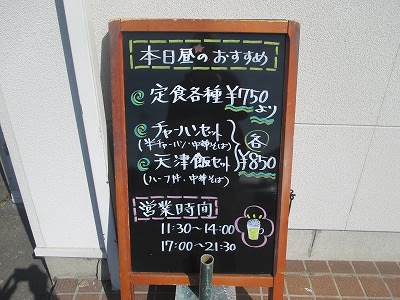 本日昼のおすすめ
定食各種¥750より
チャーハンセット
(半チャーハン・中華そば)
各¥850
天津飯セット
(ハーフ丼・中華そば)
営業時間
11:30〜14:00
17:00〜21:30